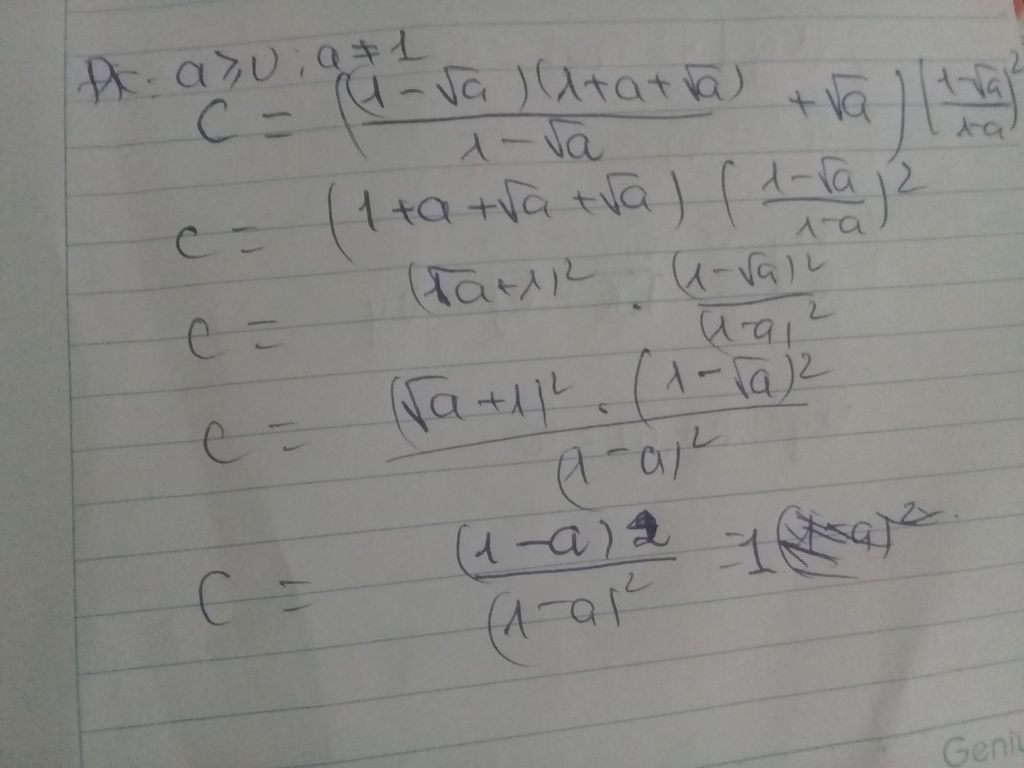 ĐK: a ≥ 0; a ≠ 1
C = ( (1 - √a)(1 + a + √a) / 1 - √a + √a ) ( 1 - √a / 1 - a )²
C = (1 + a + √a + √a) ( 1 - √a / 1 - a )²
C = (√a + 1)² . (1 - √a)² / (1 - a)²
C = (√a + 1)² . (1 - √a)² / (1 - a)²
C = (1 - a)2 / (1 - a)² = 1
Geniu